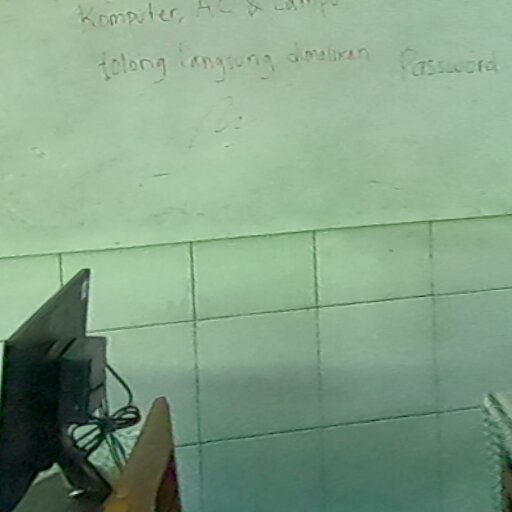 Komputer, AC & Lampu
tolong langsung dimatikan
Password